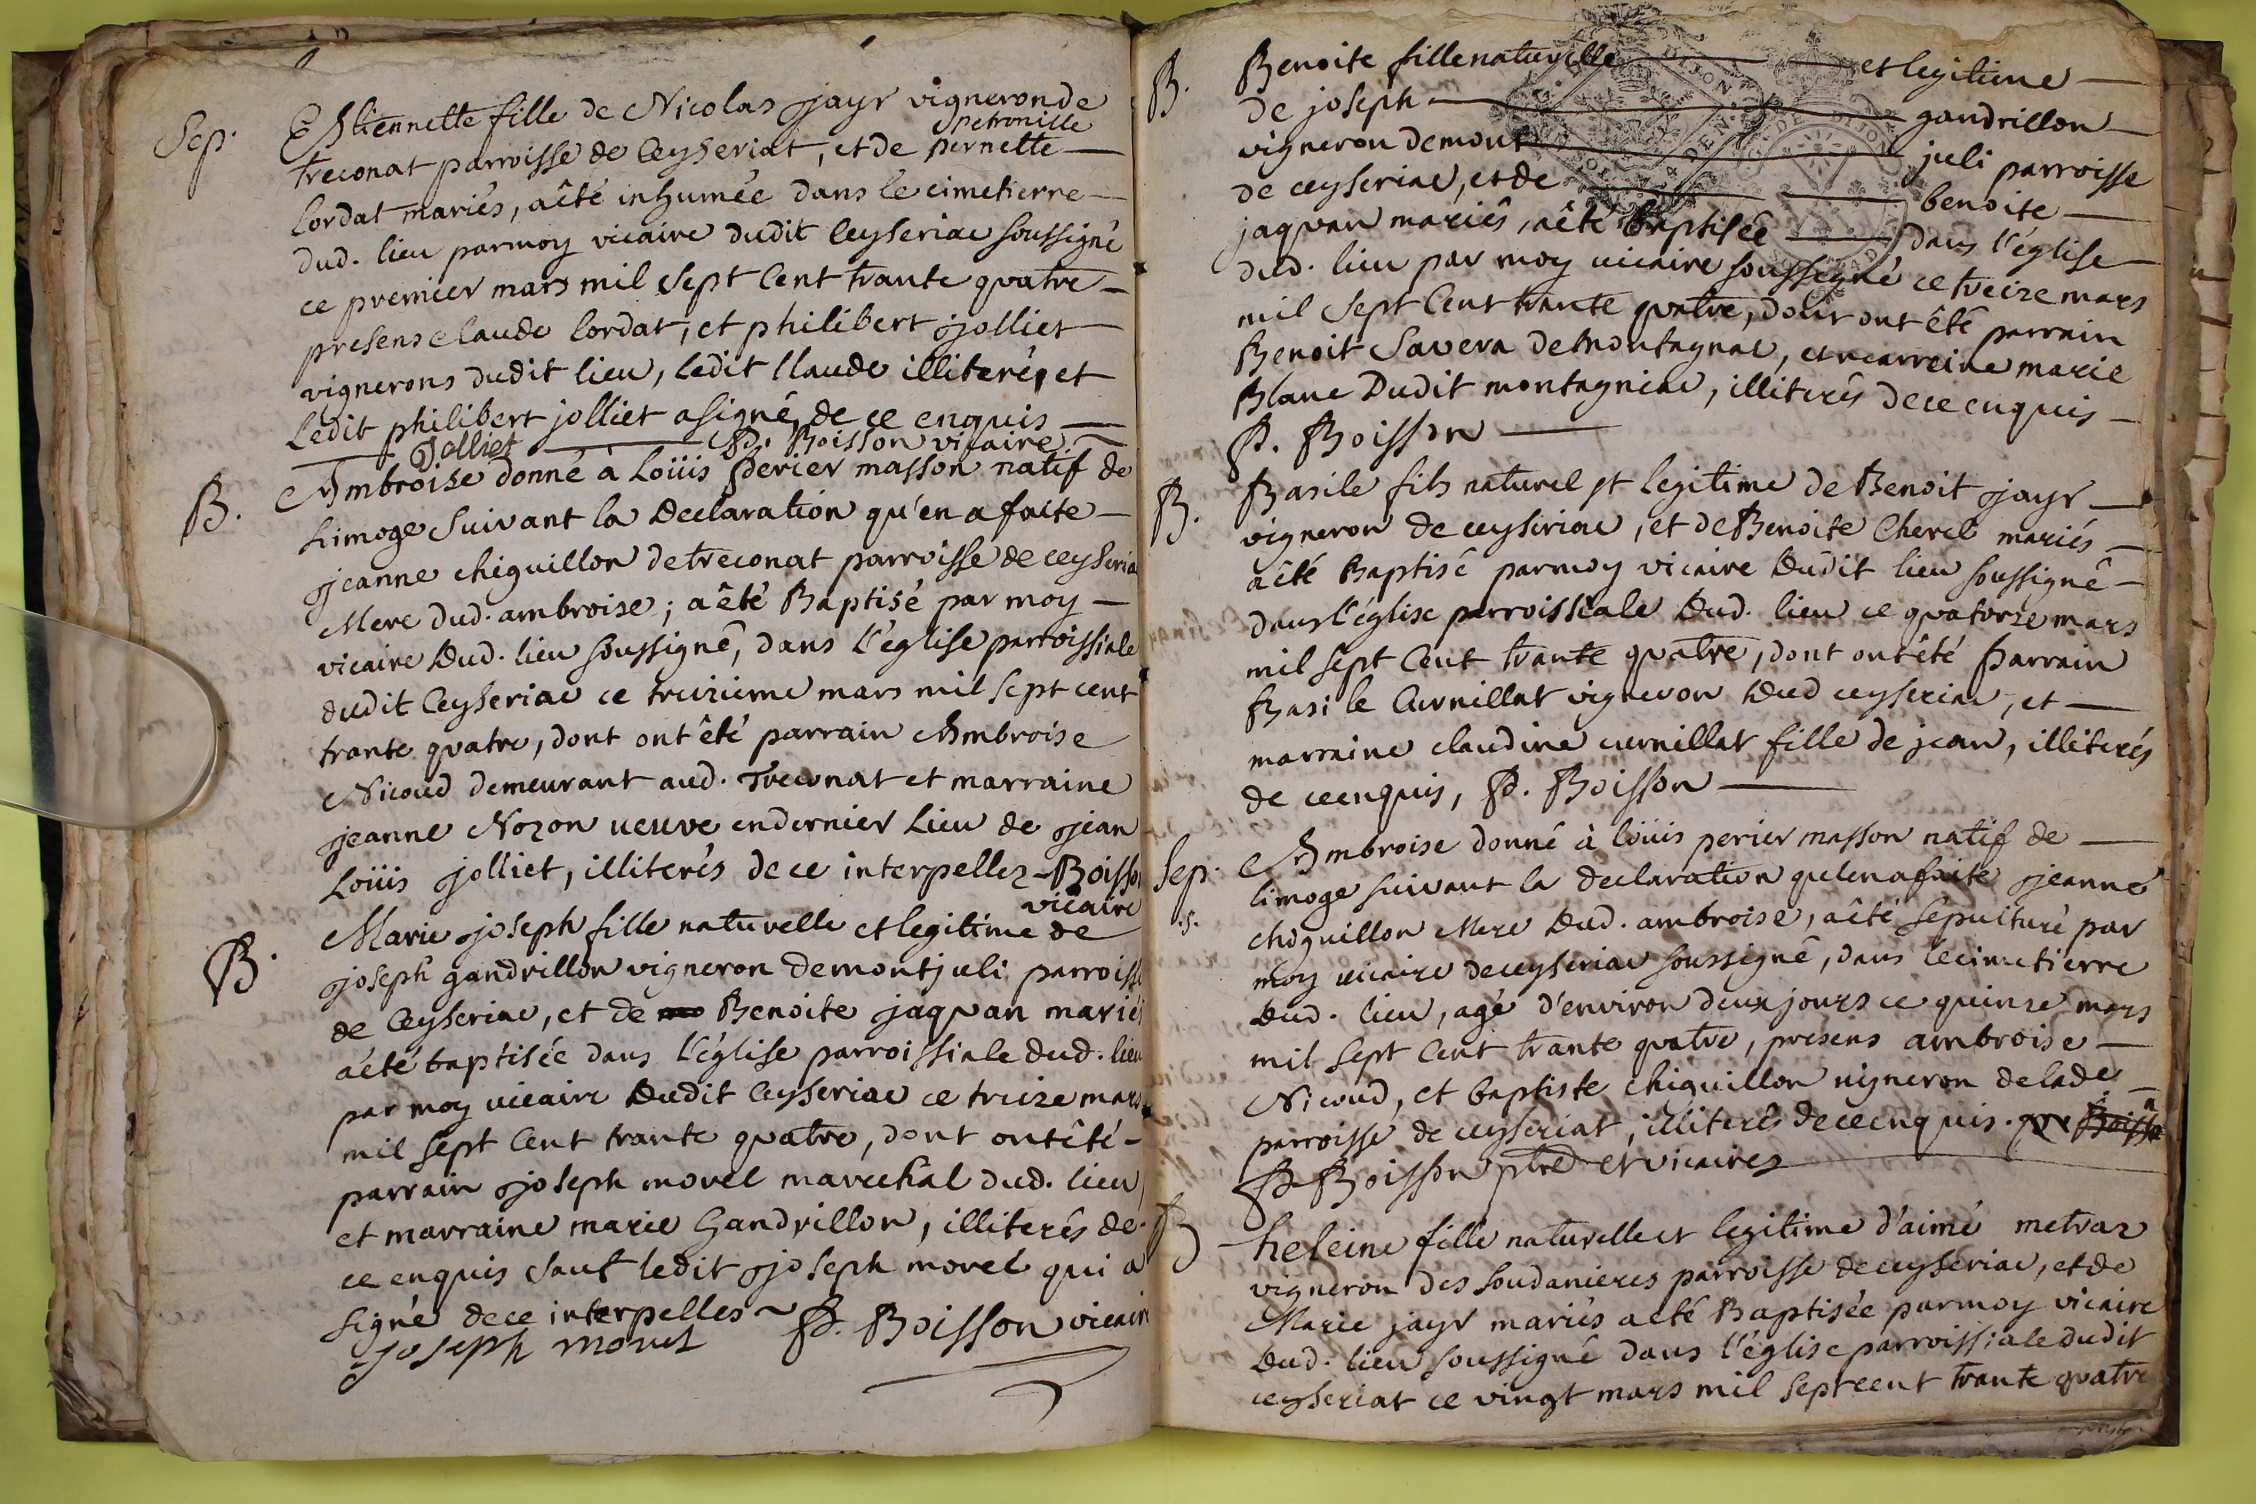 Sep. Estiennette fille de Nicolas Jayr vigneron de
petronille
treconat parroisse de Ceyseriat, et de pernette
Cordat mariés, a êté inhumée dans le cimetierre
dud. lieu par moy vicaire dudit Ceyseriac soussigné
ce premier mars mil sept Cent trante quatre
presens Claude Cordat, et philibert jolliet
vignerons dudit lieu, ledit Claude illiteré, et
Ledit philibert jolliet a signé, de ce enquis
Jolliet P. Boisson vicaire
B. Ambroise donné à Loüis Perier masson natif de
Limoge suivant la Declaration qu'en a faite
Jeanne chiguillon de treconat parroisse de ceyseria
Mere dud. ambroise; a êté Baptisé par moy
vicaire Dud. lieu soussigné, dans l'église parroissiale
dudit Ceyseriac ce treizieme mars mil sept cent
trante quatre, dont ont êté parrain Ambroise
Nicoud demeurant aud. Treconat et marraine
jeanne Nozon veuve en dernier Lieu de jean
Loüis jolliet, illiterés de ce interpellez Boisson
vicaire
B. Marie joseph fille naturelle et legitime de
joseph gandrillon vigneron de montjuli parroisse
de Ceyseriac, et de Benoite jaquan mariés
a êté baptisée dans l'église parroissiale dud. lieu
par moy vicaire Dudit Ceyseriac ce treize mars
mil sept Cent trante quatre, dont ont êté
parrain joseph morel marechal dud. lieu
et marraine marie Gandrillon, illiterés de
ce enquis sauf ledit joseph morel qui a
signé de ce interpelles P. Boisson vicaire
joseph morel
B. Benoite fille naturelle et legitime
de joseph gandrillon
vigneron de mont juli parroisse
de ceyseriac, et de benoite
jaquan mariés, a êté baptisée dans l'église
dud. lieu par moy vicaire soussigné ce treize mars
mil sept Cent trante quatre, dont ont êté parrain
Benoit Savera de montagnac, et marreine marie
Blanc Dudit montagniac, illiterés de ce enquis
P. Boisson
B. Basile fils naturel et legitime de Benoit jayr
vigneron de ceyseriac, et de Benoite Cherel mariés
a êté Baptisé par moy vicaire Dudit lieu soussigné
dans l'église parroissiale Dud. lieu ce quatorze mars
mil sept Cent trante quatre, dont ont êté Parrain
Basile Curnillat vigneron Dud ceyseriac, et
marraine claudine curnillat fille de jean, illiterés
de ce enquis, P. Boisson
Sep. Ambroise donné à loüis perier masson natif de
limoge suivant la declaration qu'en a faite jeanne
.5. chiguillon Mere Dud. ambroise, a êté sepulturé par
moy vicaire de ceyseriac soussigné, dans le cimetierre
Dud. lieu, agé d'environ deux jours ce quinze mars
mil sept Cent trante quatre, presens ambroise
Nicoud, et baptiste chiguillon vigneron de lade
parroisse de ceyseriat, illiterés de ce enquis.
P. Boisson ptre et vicaire
B heleine fille naturelle et legitime d'aimé metraz
vigneron des soudanieres parroisse de ceyseriac, et de
Marie jayr mariés a eté Baptisée par moy vicaire
Dud. lieu soussigné dans l'église parroissiale dudit
ceyseriat ce vingt mars mil sept cent trante quatre